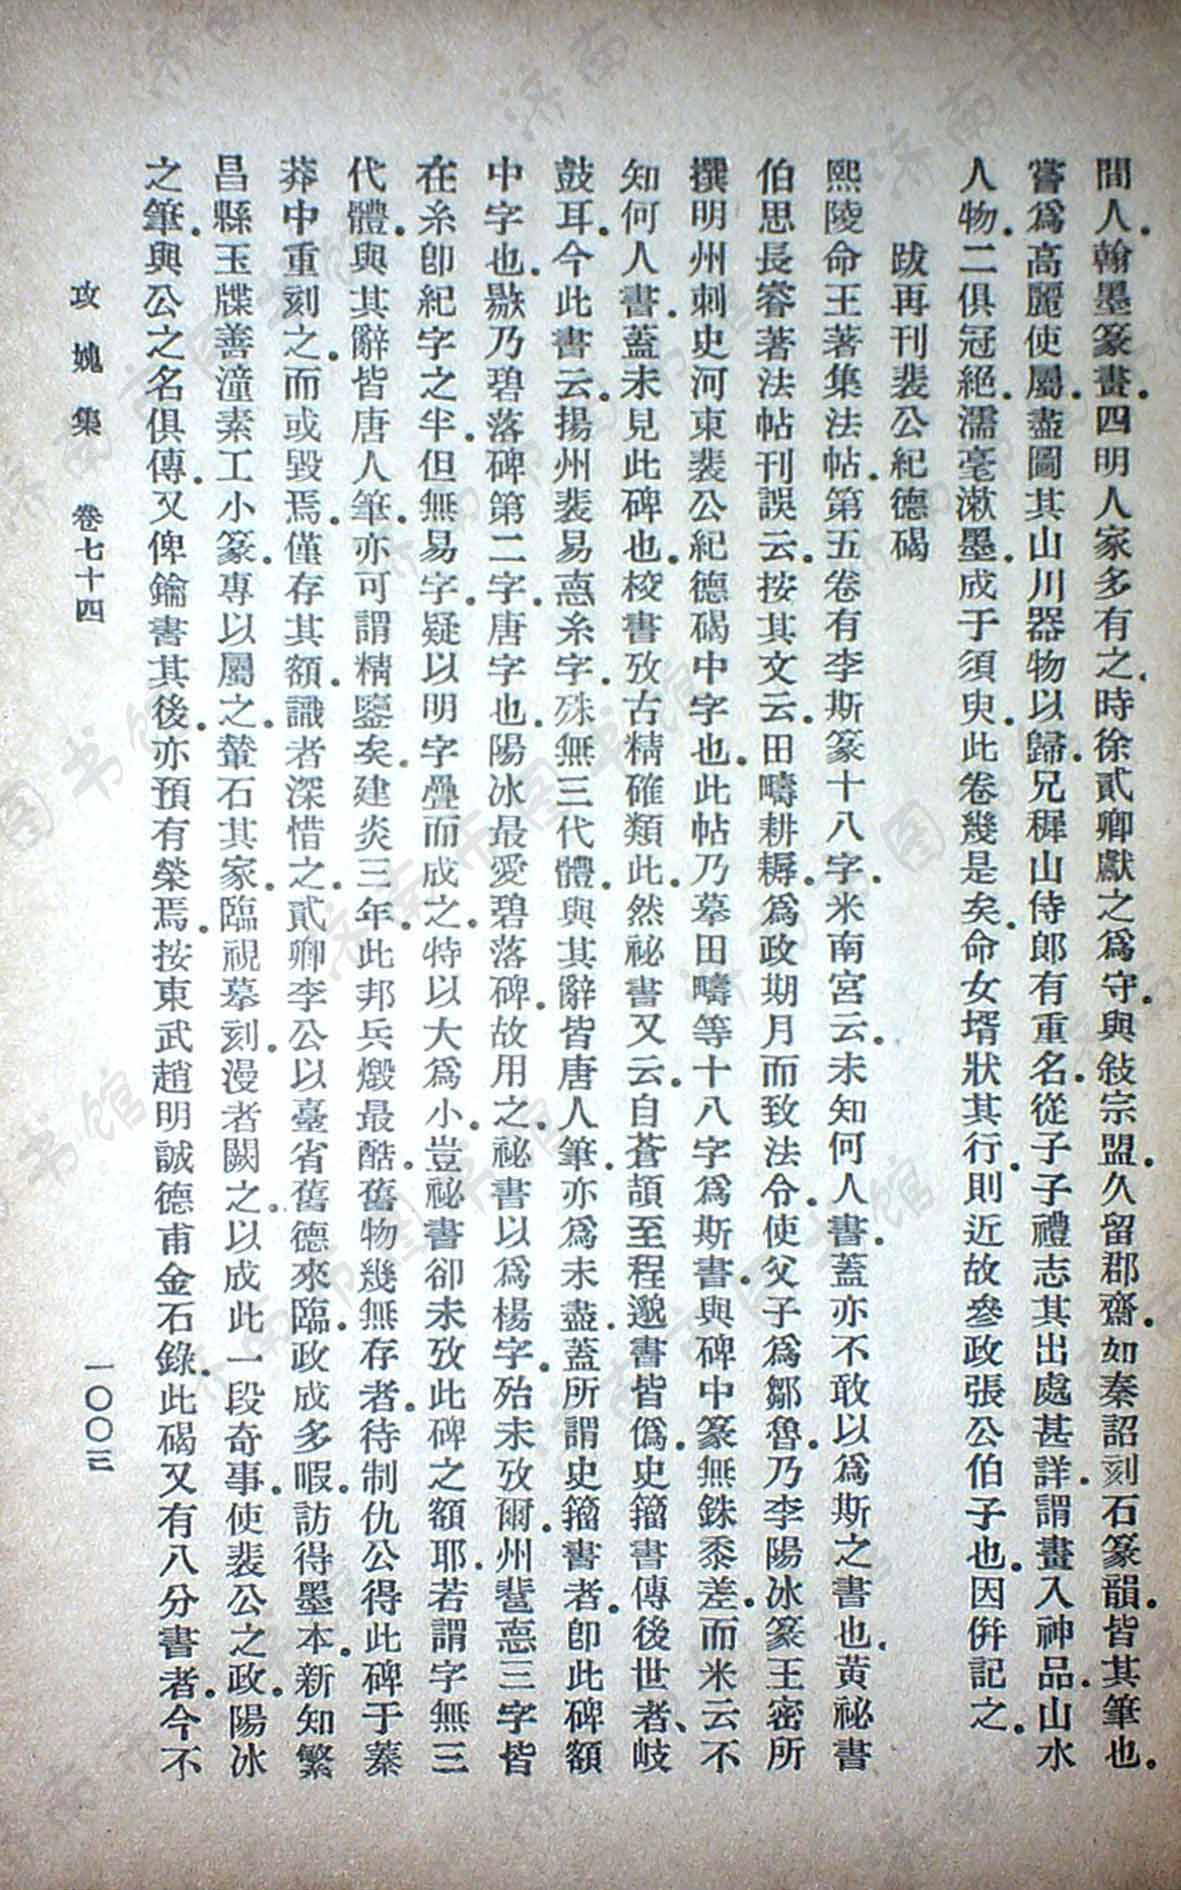 間人。翰墨篆畫。四明人家多有之、時徐貳卿獻之爲守。與敍宗盟。久留郡齋。如秦詔刻石篆韻。皆其筆也。
嘗爲高麗使屬。盡圖其山川器物以歸。兄穉山侍郎有重名。從子子禮志其出處甚詳。謂畫入神品。山水
人物。二俱冠絕。濡毫漱墨。成于須臾。此卷幾是矣。命女壻狀其行。則近故參政張公伯子也。因倂記之。
跋再刊裴公紀德碣
熙陵命王著集法帖。第五卷有李斯篆十八字。米南宮云。未知何人書。蓋亦不敢以爲斯之書也。黃祕書
伯思長睿著法帖刊誤云。按其文云。田疇耕耨。爲政期月而致法令。使父子爲鄒魯。乃李陽冰篆王密所
撰明州刺史河東裴公紀德碣中字也。此帖乃摹田疇等十八字爲斯書。與碑中篆無銖黍差。而米云不
知何人書。蓋未見此碑也。校書攷古精確類此。然祕書又云。自蒼頡至程邈書皆僞。史籀書傳後世者、岐
鼓耳。今此書云。揚州裴易悳糸字。殊無三代體。與其辭皆唐人筆。亦爲未盡。蓋所謂史籀書者。卽此碑額
中字也。敭乃碧落碑第二字。唐字也。陽冰最愛碧落碑。故用之。祕書以爲楊字。殆未攷爾。州裴悳三字皆
在糸卽紀字之半。但無易字。疑以明字疊而成之。特以大爲小。豈祕書卻未攷此碑之額耶。若謂字無三
代體。與其辭皆唐人筆。亦可謂精鑒矣。建炎三年。此邦兵燬最酷。舊物幾無存者。待制仇公得此碑于蓁
莽中重刻之。而或毀焉。僅存其額。識者深惜之。貳卿李公以臺省舊德來臨。政成多暇。訪得墨本。新知繁
昌縣玉牒善潼素工小篆。專以屬之。輦石其家。臨視摹刻。漫者闕之。以成此一段奇事。使裴公之政。陽冰
之筆。與公之名俱傳。又俾鑰書其後。亦預有榮焉。按東武趙明誠德甫金石錄。此碣又有八分書者。今不
攻媿集 卷七十四 一〇〇三